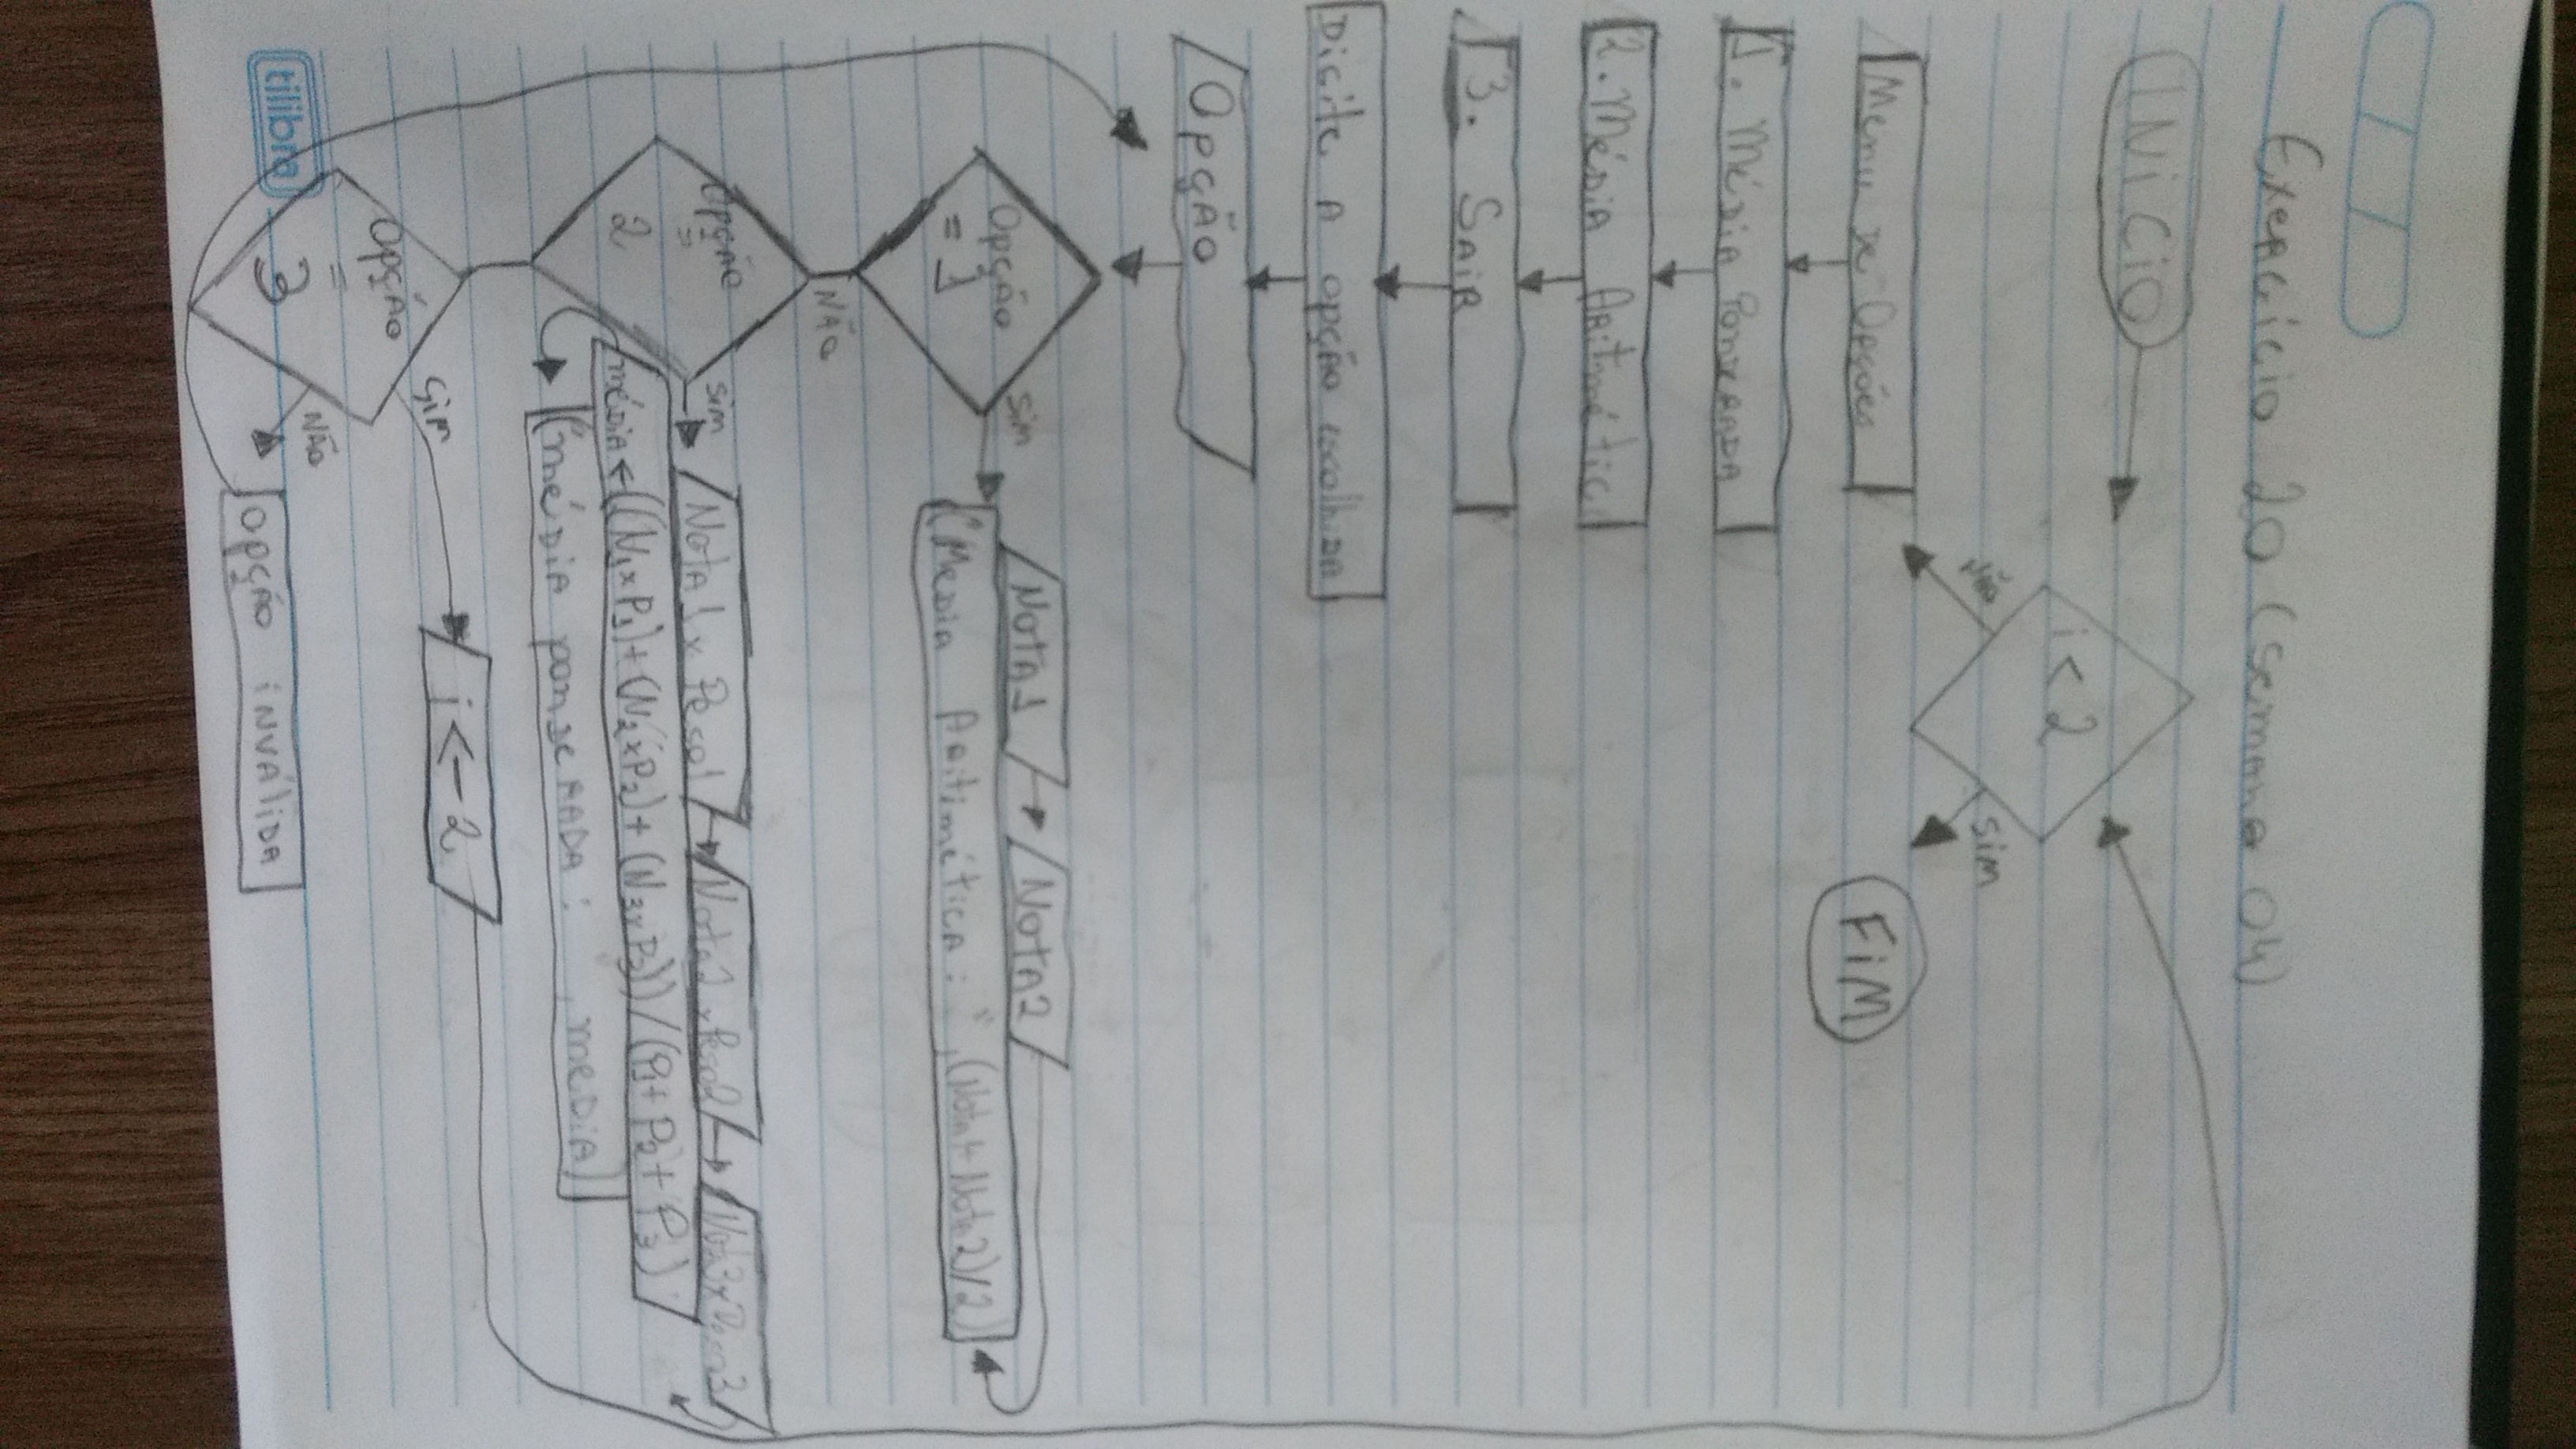 Exercício 20 (Semana 04)
INICIO
i < 2
NÃO
Sim
Menu de Opções
FiM
1. Média Ponderada
2. Média Aritmétic
3. Sair
Digite a opção escolhida
Opção
Opção = 1
Sim
Nota1
Nota2
("Media Aritimética: ", (Nota1+Nota2)/2)
NÃO
Opção = 2
Sim
Nota1 x Peso1
Nota2 x Peso2
Nota3 x Peso3
média ← ((N1xP1)+(N2xP2)+(N3xP3))/(P1+P2+P3)
("média ponderada: ", media)
Sim
i <- 2
Opção = 3
NÃO
Opção inválida
tilibra